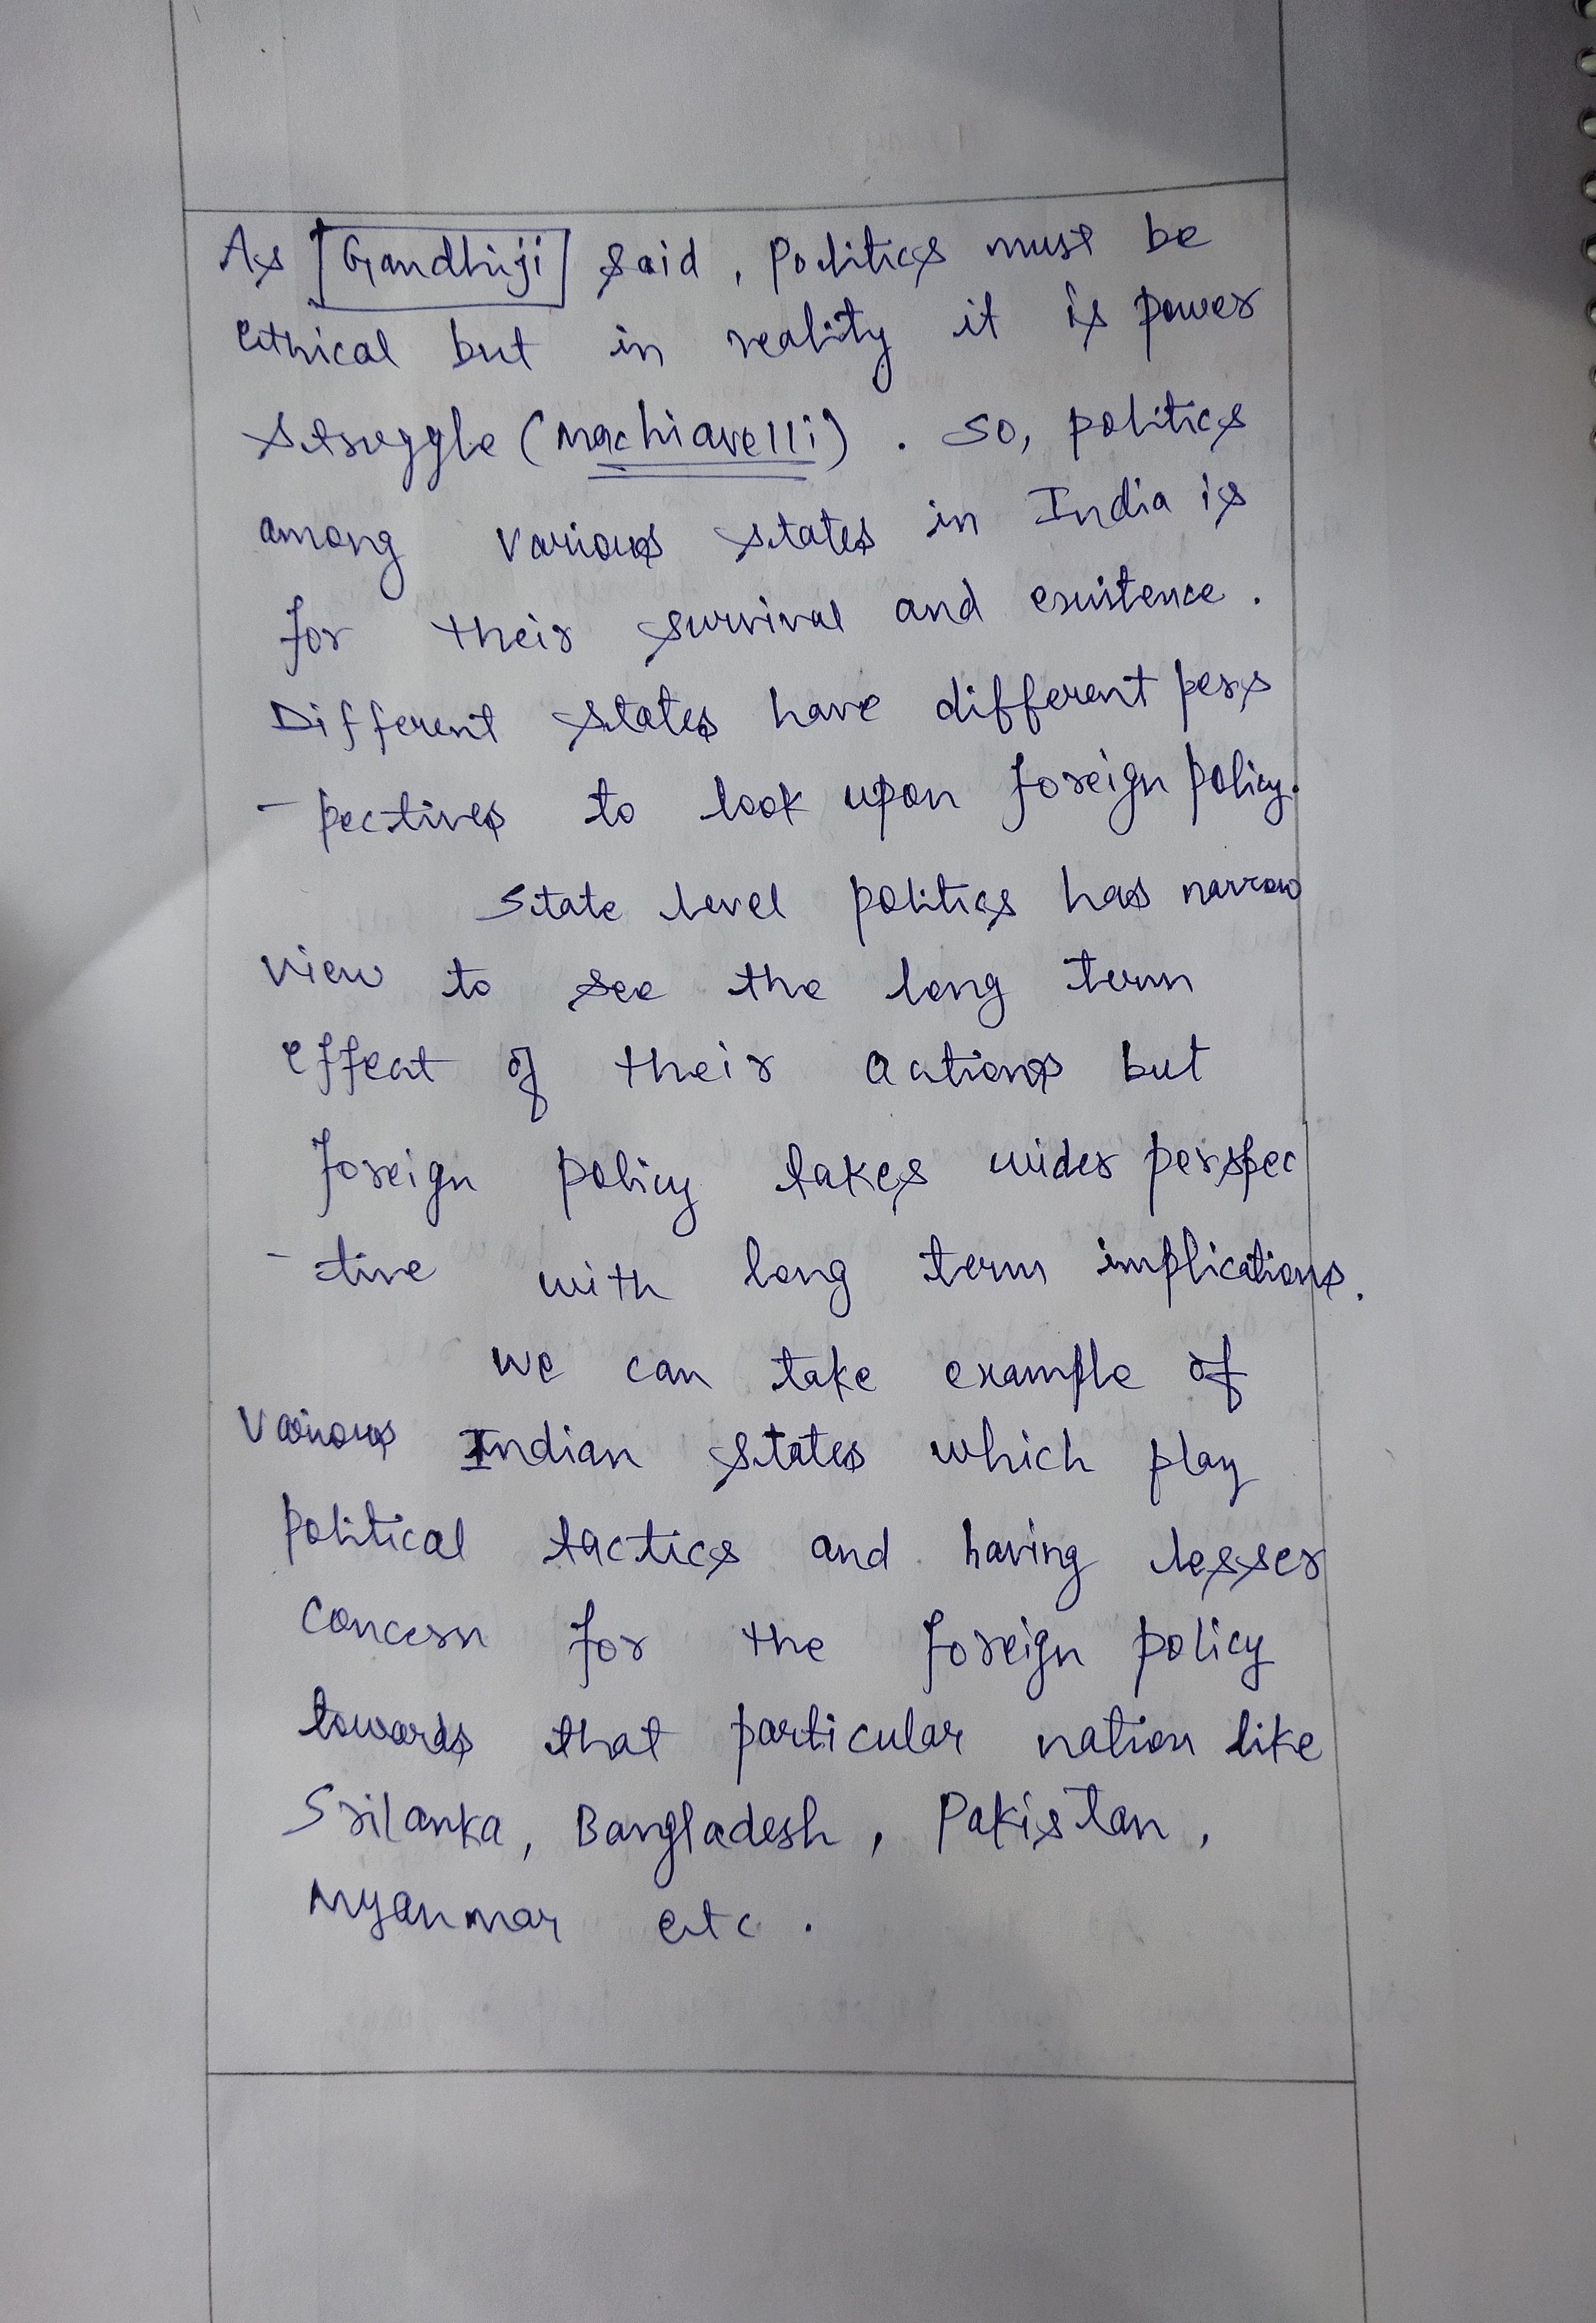 As Gandhiji said, Politics must be
ethical but in reality it is power
struggle (Machiavelli). So, politics
among various states in India is
for their survival and existence.
Different states have different pers
-pectives to look upon foreign policy.
State level politics has narrow
view to see the long term
effect of their actions but
foreign policy takes wider perspec
-tive with long term implications.
we can take example of
various Indian states which play
political tactics and having lesser
concern for the foreign policy
towards that particular nation like
Srilanka, Bangladesh, Pakistan,
Myanmar etc.